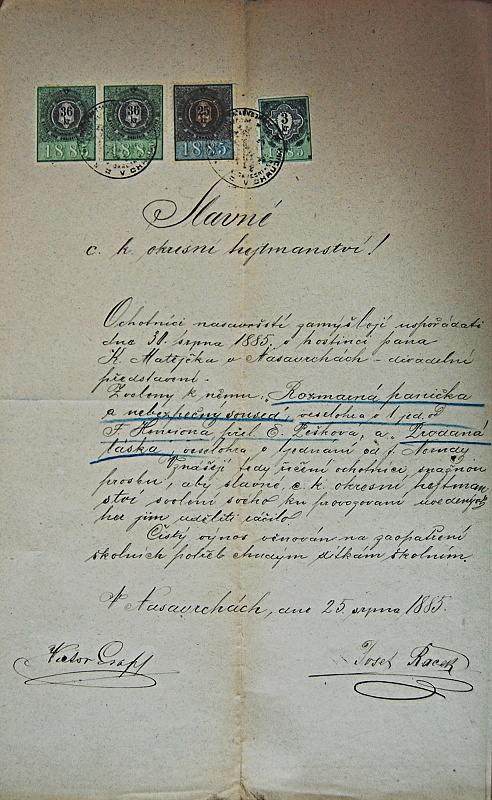 36 36 25 3
1885 1885 1885 1885
Slavné
c. k. okresní hejtmanství!
Ochotníci nasavrčtí zamýšlejí uspořádati
dne 30. srpna 1885. v hostinci pana
K. Matějčka v Nasavrchách – divadelní
představení.
Zvoleny k němu: Rozmarná panička
a nebezpečný soused, veselohra o 1 jed. od
F. přel. E. Pešková, a „Prodaná
láska, veselohra o 1 jednání od J. Nerudy
Vznášejí tedy ochotníci snažnou
prosbu, aby slavné c. k. okresní hejtman-
ství svolení svého ku provozování uvedených
her jim uděliti ráčilo.
Čistý výnos věnován na zaopatření
školních potřeb chudým dítkám školním.
V Nasavrchách, dne 25. srpna 1885.
Victor Josef Racek